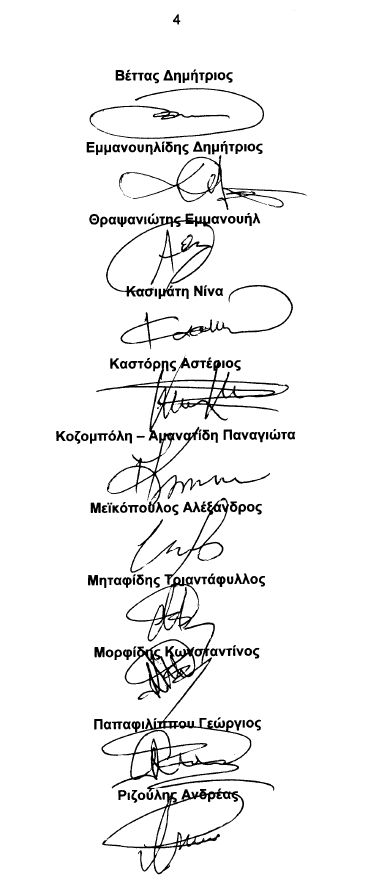 4
Βέττας Δημήτριος
Εμμανουηλίδης Δημήτριος
Θραψανιώτης Εμμανουήλ
Κασιμάτη Νίνα
Καστόρης Αστέριος
Κοζομπόλη – Αμανατίδη Παναγιώτα
Μεϊκόπουλος Αλέξανδρος
Μηταφίδης Τριαντάφυλλος
Μορφίδης Κωνσταντίνος
Παπαφιλίππου Γεώργιος
Ριζούλης Ανδρέας